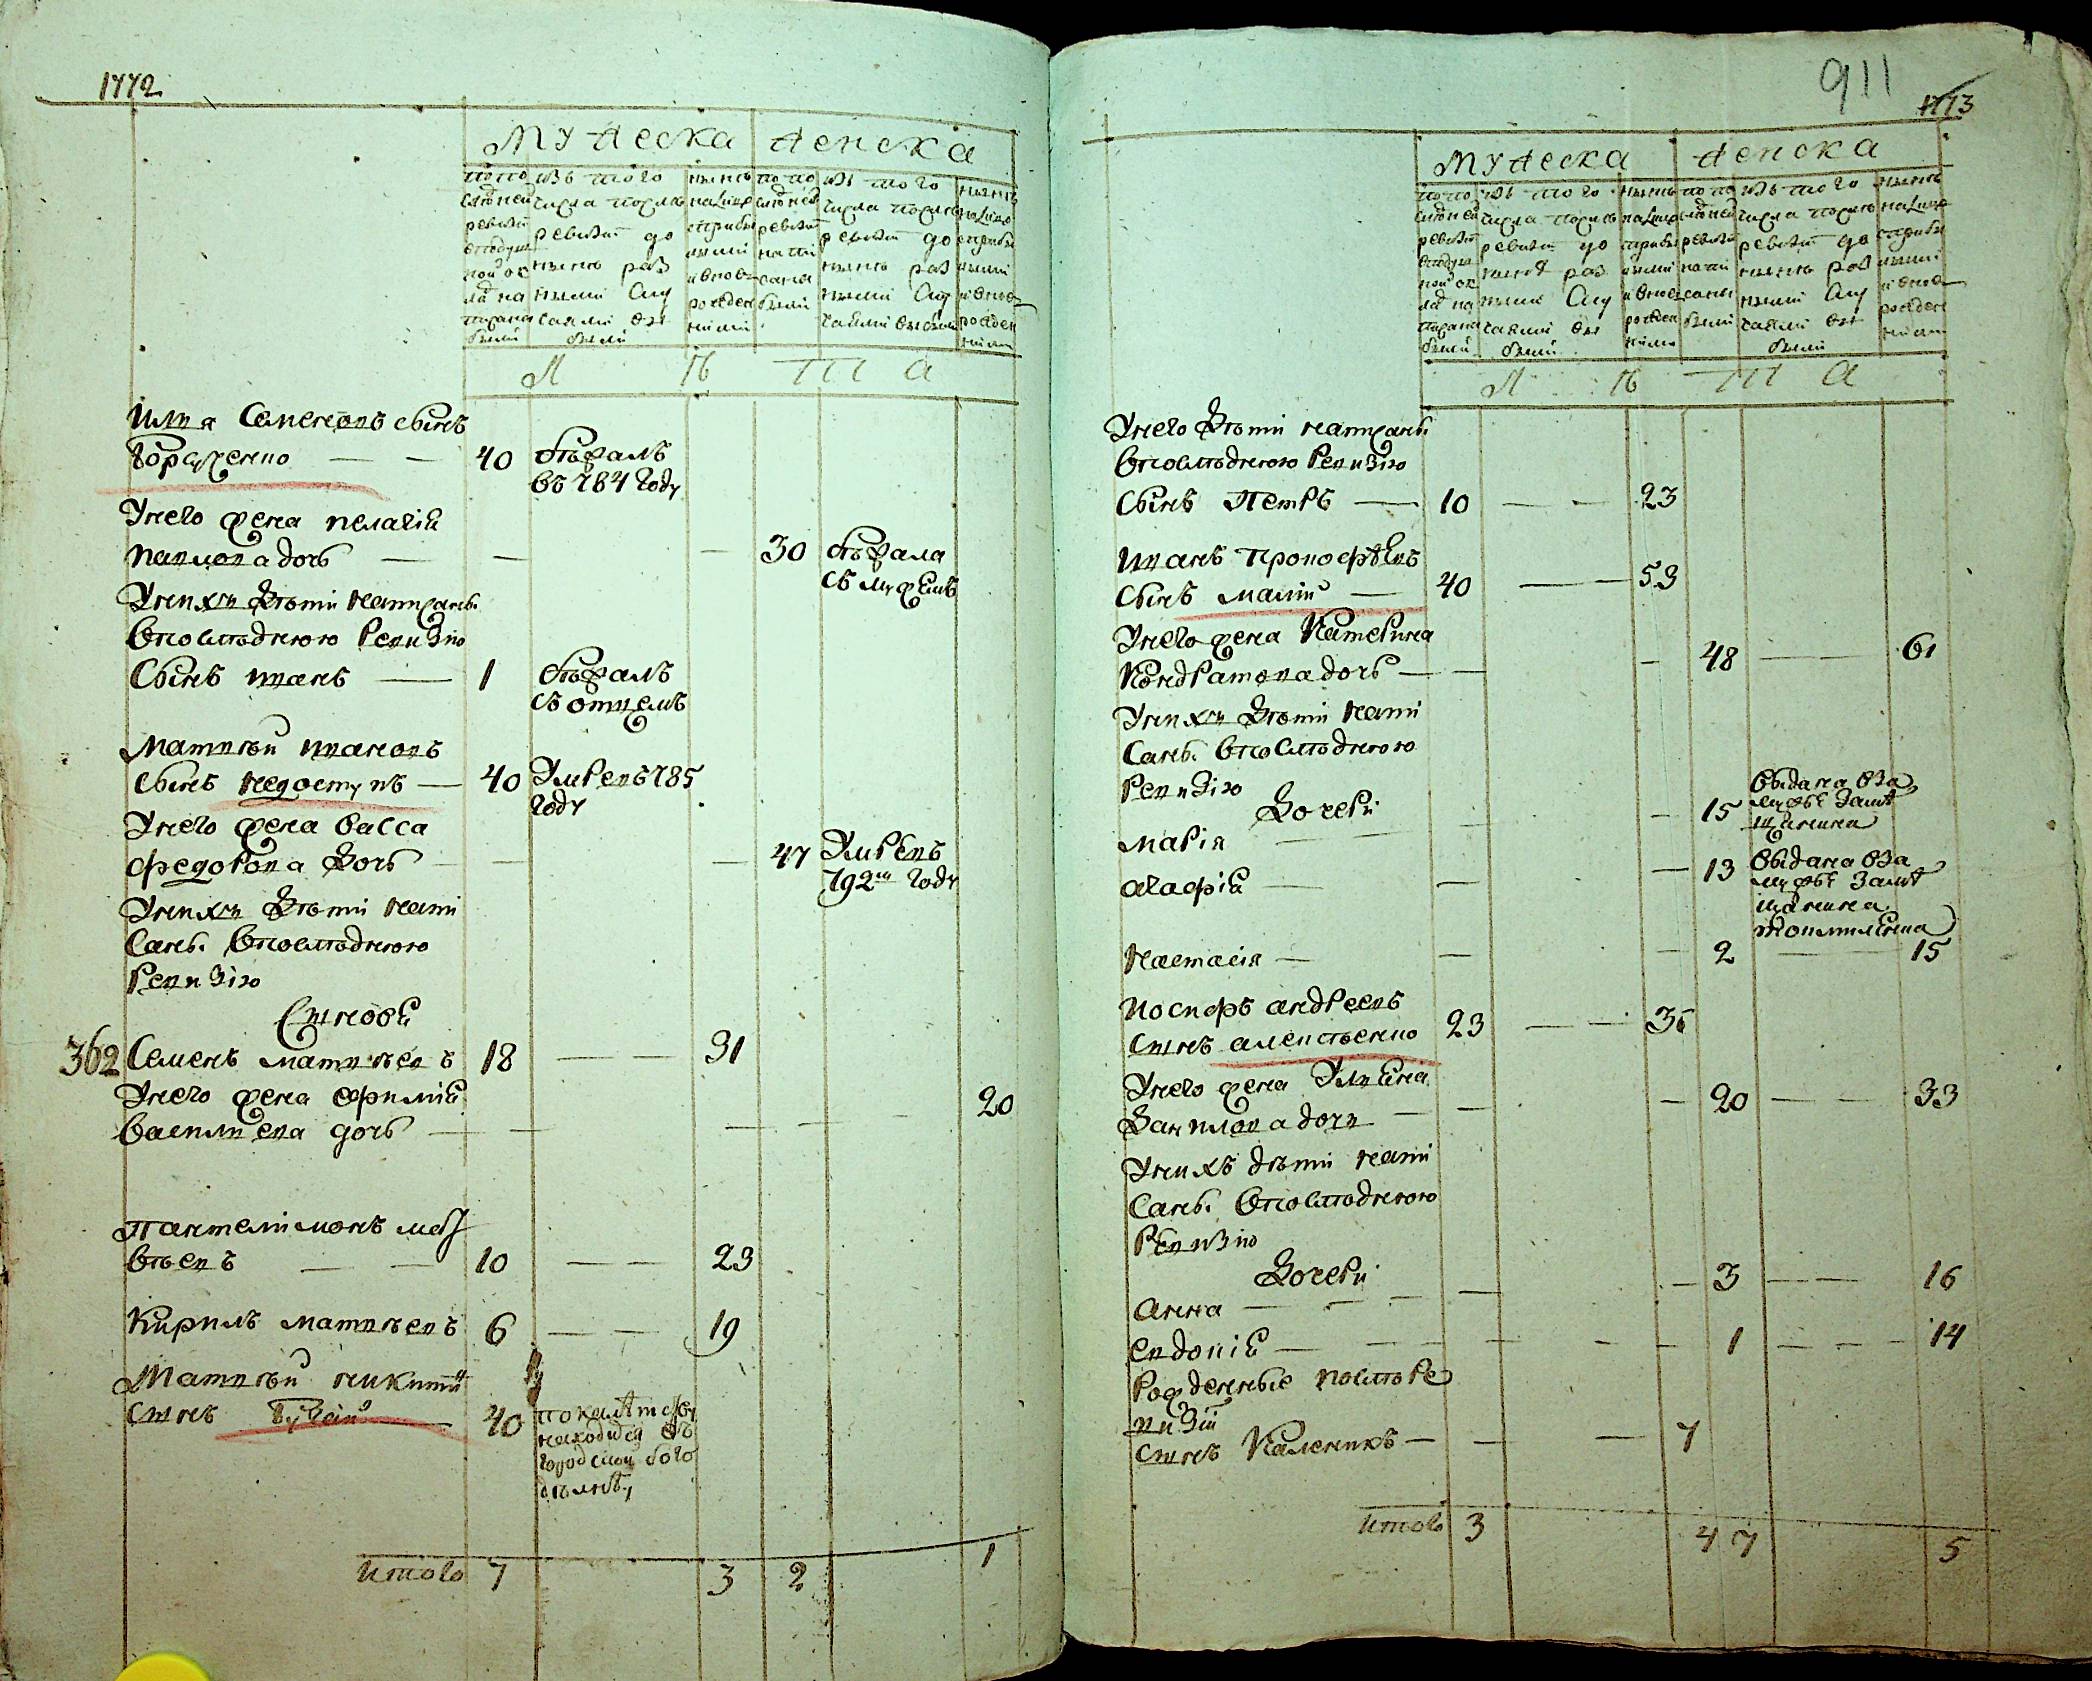 1772
мужеска женска
по по
следней
ревизии
в подуш
ной ок
лад на
писано
было
изъ того
числа послѣ
ревизіи до
нынѣ раз
ными слу
чаями вы
было
нынѣ
на лицо
с прибы
лыми
и вновь
рожден
ными
по по
следней
ревизіи
напи
сано
было
изъ того
числа послѣ
ревизіи до
нынѣ раз
ными слу
чаями выбыло
нынѣ
на лицо
с прибы
лыми
и вновь
рожден
ными
Л Ѣ Т А
Илья Семеновъ сынъ
Борщенко 40 бѣжалъ
въ 784 году
У него жена Пелагія
Павлова дочь 30 бѣжала
съ мужемъ
У нихъ дѣти написан.
въ последнюю ревизію
Сынъ Иванъ 1 бѣжалъ
съ отцемъ
Матвѣй Ивановъ
сынъ Недоступъ 40 Умре въ 785
году
У него жена Васса
Федорова дочь 47 Умре въ
792м году
У нихъ дѣти напи
сан. въ последнюю
ревизію
Сынови
362 Семенъ Матвѣевъ 18 31
У него жена Ефимія
Васильева дочь 20
Пантелимонъ Мат
вѣевъ 10 23
Кирилъ Матвѣевъ 6 19
Матвѣй Никитинъ
сынъ 40
находися въ
городской бого
дѣльнѣ
Итого 7 3 2 1
911
1773
мужеска женска
по по
следней
ревизіи
в подуш
ной ок
лад на
писано
было
изъ того
числа послѣ
ревизіи до
нынѣ раз
ными слу
чаями вы
было
нынѣ
на лицо
с прибы
лыми
и вновь
рожден
ными
по по
следней
ревизіи
напи
саны
было
изъ того
числа послѣ
ревизіи до
нынѣ раз
ными слу
чаями вы
было
нынѣ
на лицо
с прибы
лыми
и вновь
рожден
ными
Л Ѣ Т А
У него дѣти написан.
въ последнюю ревизію
Сынъ Петръ 10 23
Иванъ Прокофѣевъ
сынъ Малій 40 53
У него жена Катерина
Кондратова дочь 48 61
У нихъ дѣти напи
сан. въ последнюю
ревизію
Дочери
Марія 15 выдана в за
мужъ
Агафія 13 выдана в за
мужъ
Настасія 2 15
Иосифъ Андреевъ
сынъ Алексѣенко 23 36
У него жена Ульяна
Данилова дочь 20 33
У нихъ дѣти напи
сан. въ последнюю
ревизію
Дочери
Анна 3 16
Евдокія 1 14
Рожденные после ре
визіи
сынъ Каленикъ 7
Итого 3 4 7 5